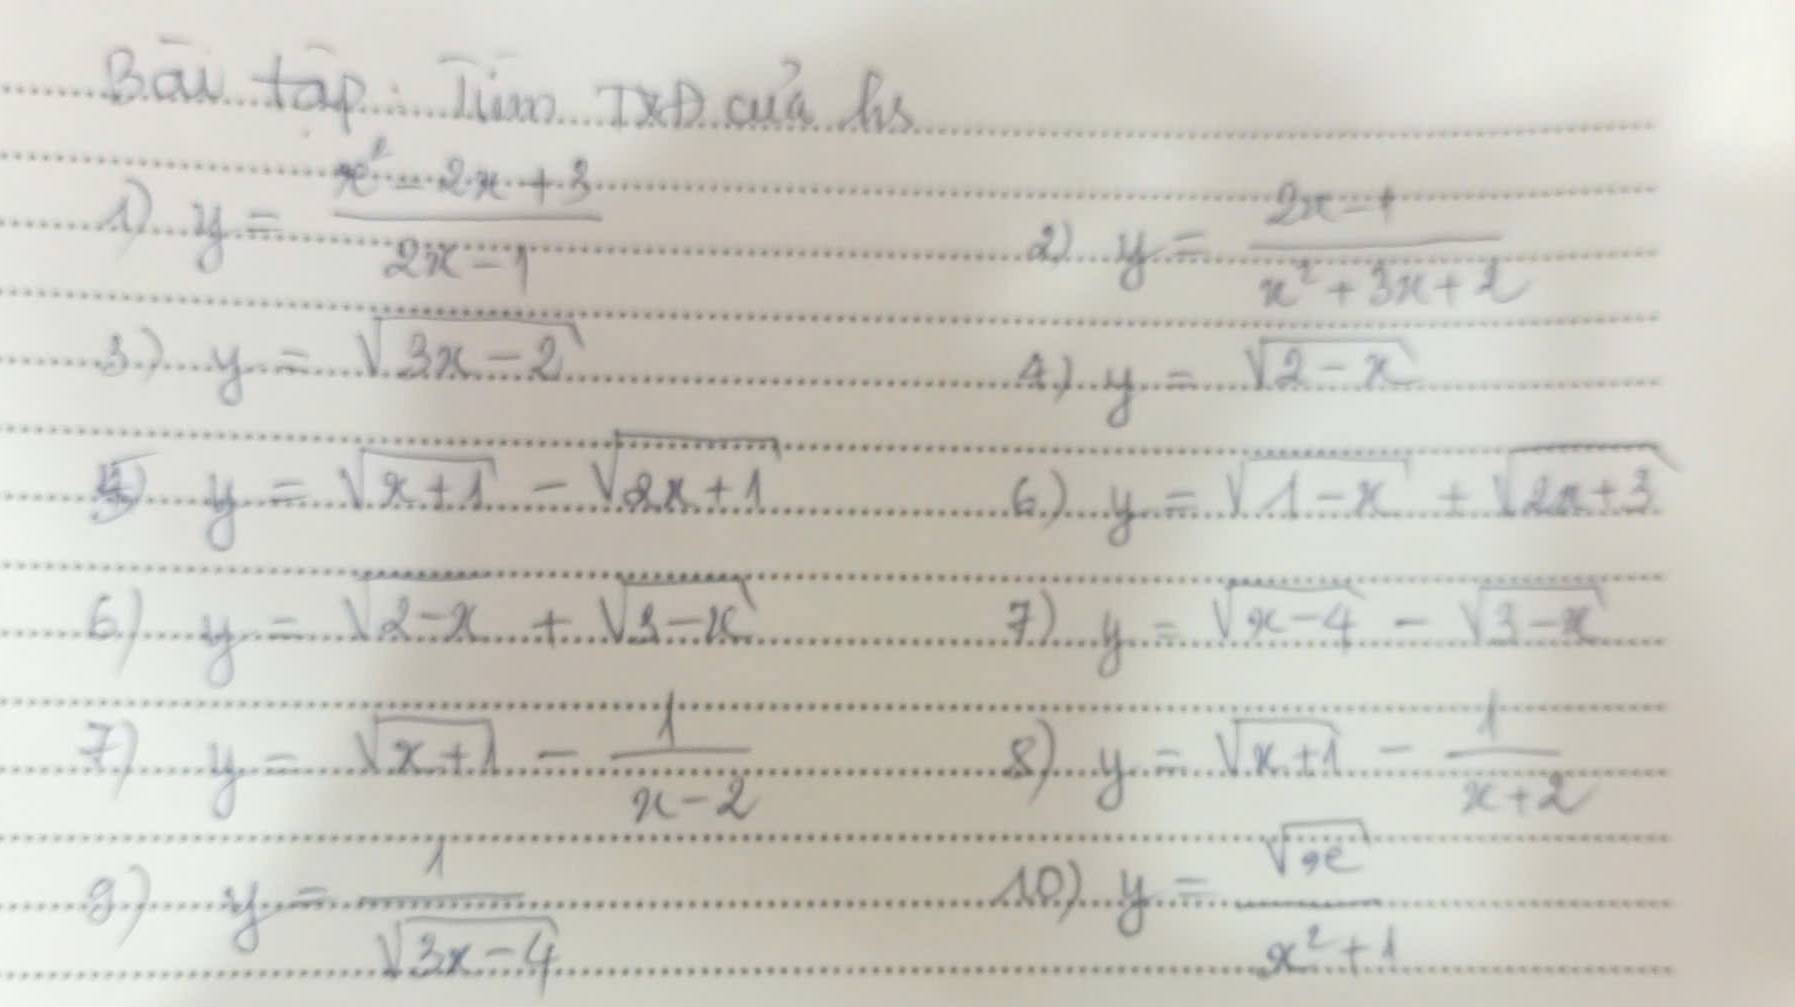 Bài tập: Tìm TXĐ của hs
1) y = (x² - 2x + 3)/(2x - 1)    2) y = (2x - 1)/(x² + 3x + 2)
3) y = √(3x - 2)    4) y = √(2 - x)
5) y = √(x + 1) - √(2x + 1)    6) y = √(1 - x) + √(2x + 3)
6) y = √(2 - x) + √(3 - x)    7) y = √(x - 4) - √(3 - x)
7) y = √(x + 1) - 1/(x - 2)    8) y = √(x + 1) - 1/(x + 2)
9) y = 1/√(3x - 4)    10) y = √x/(x² + 1)